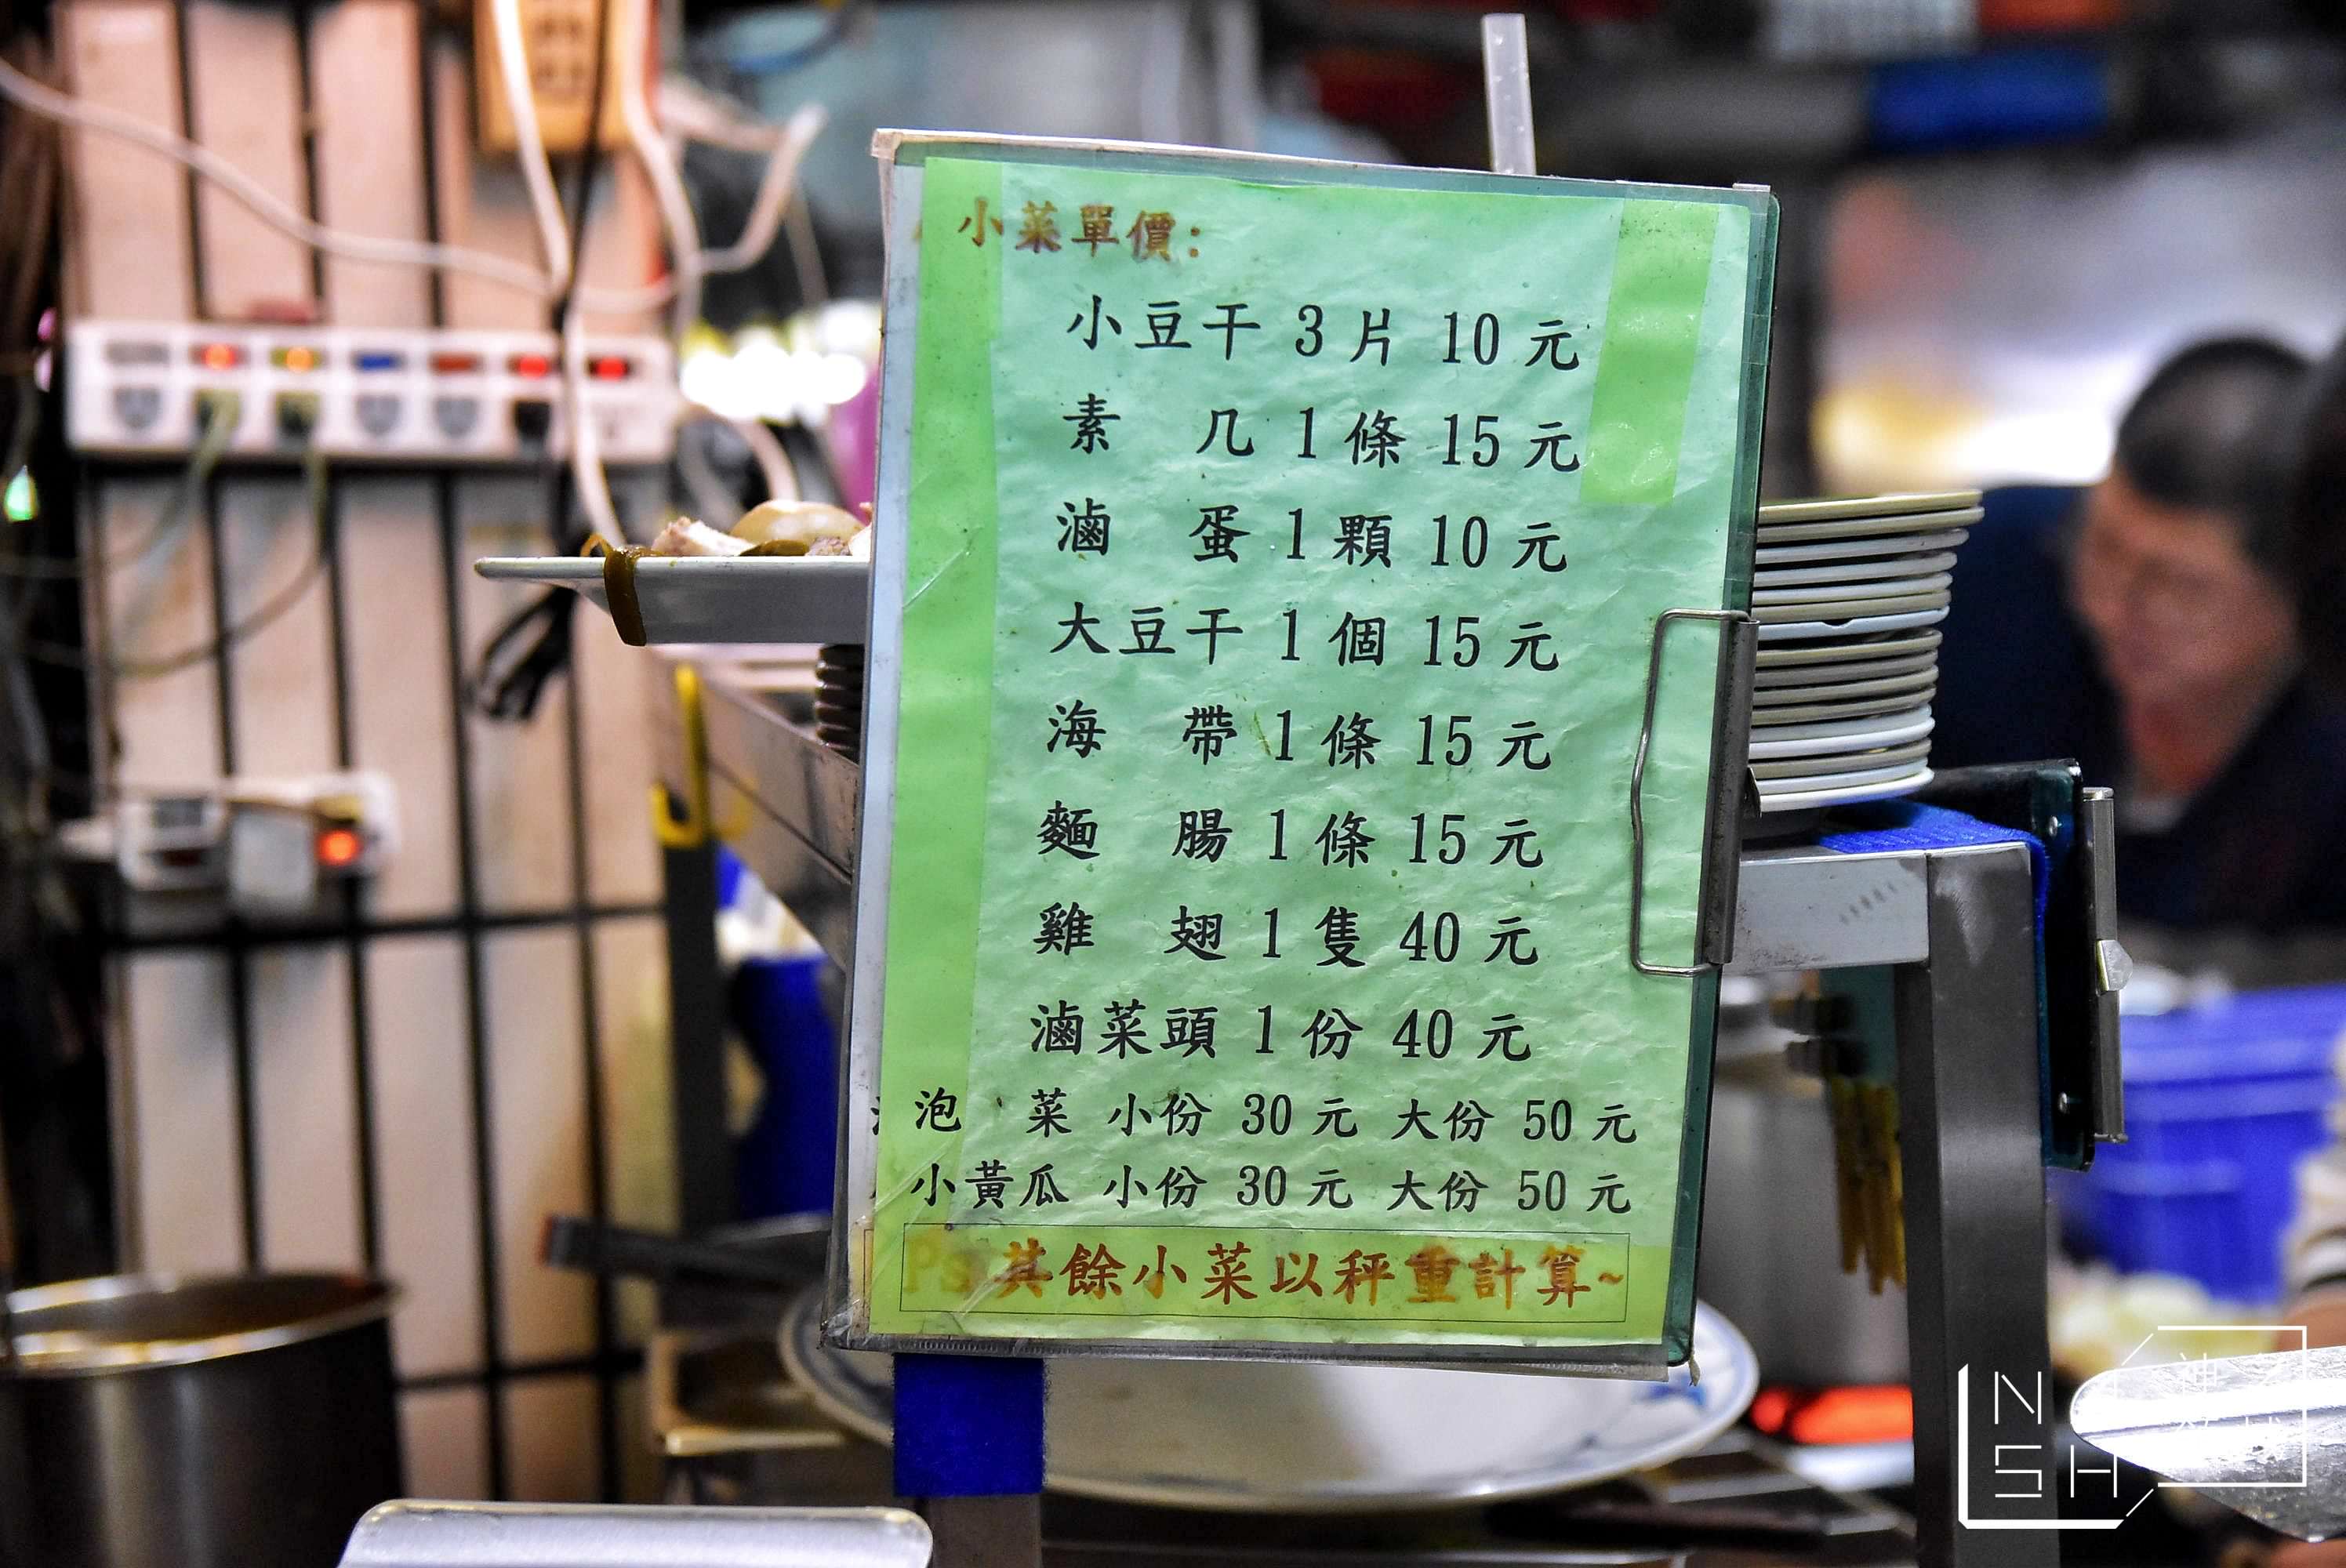 小菜單價:
小豆干 3 片 10 元
素 几 1 條 15 元
滷 蛋 1 顆 10 元
大豆干 1 個 15 元
海 帶 1 條 15 元
麵 腸 1 條 15 元
雞 翅 1 隻 40 元
滷菜頭 1 份 40 元
泡 菜 小份 30 元 大份 50 元
小黃瓜 小份 30 元 大份 50 元
Ps 其餘小菜以秤重計算~
N
SH